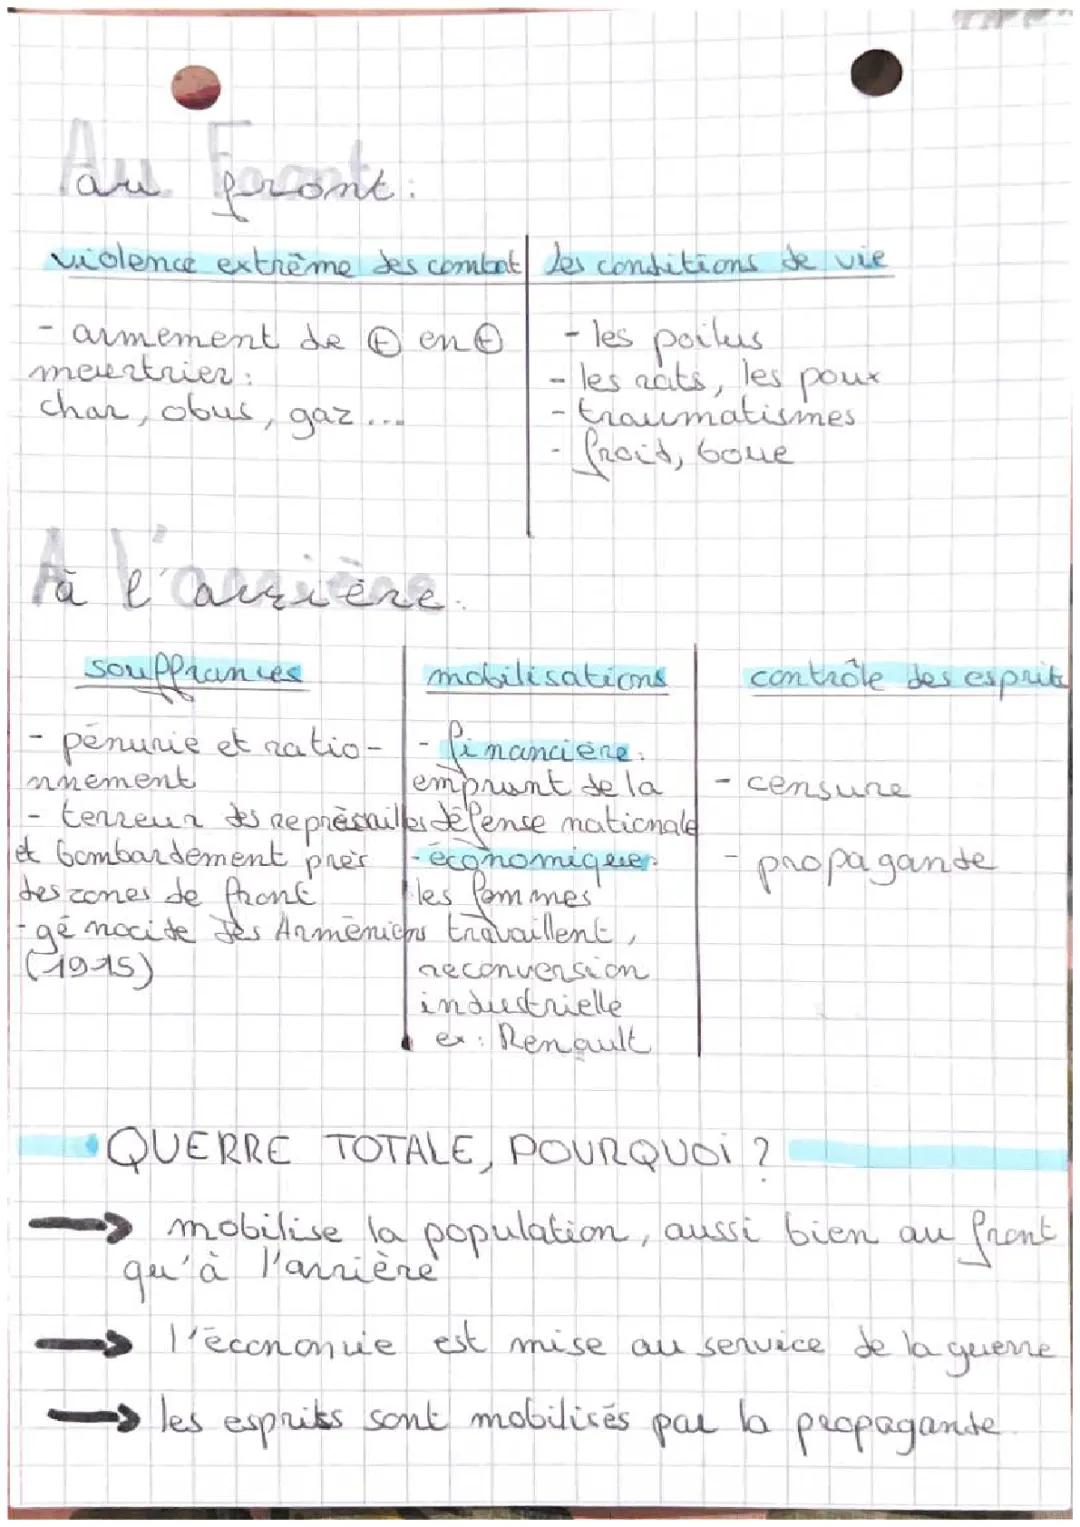 Au Front
au front:
violence extrême des combat
les conditions de vie
- armement de ⊕ en ⊕
meurtrier:
char, obus, gaz...
- les poilus
- les rats, les poux
- traumatismes
- froid, boue
A l'arrière
à l'arrière.
souffrances
- pénurie et ratio-
nnement
- terreur des représailles
et bombardement près
des zones de front
- génocide des Arméniens
(1915)
mobilisations
- financière:
emprunt de la
défense nationale
- économique:
les femmes
travaillent,
reconversion
industrielle
ex: Renault
contrôle des esprit
- censure
- propagande
QUERRE TOTALE, POURQUOI ?
→ mobilise la population, aussi bien au front
qu'à l'arrière
→ l'économie est mise au service de la guerre
→ les esprits sont mobilisés par la propagande.